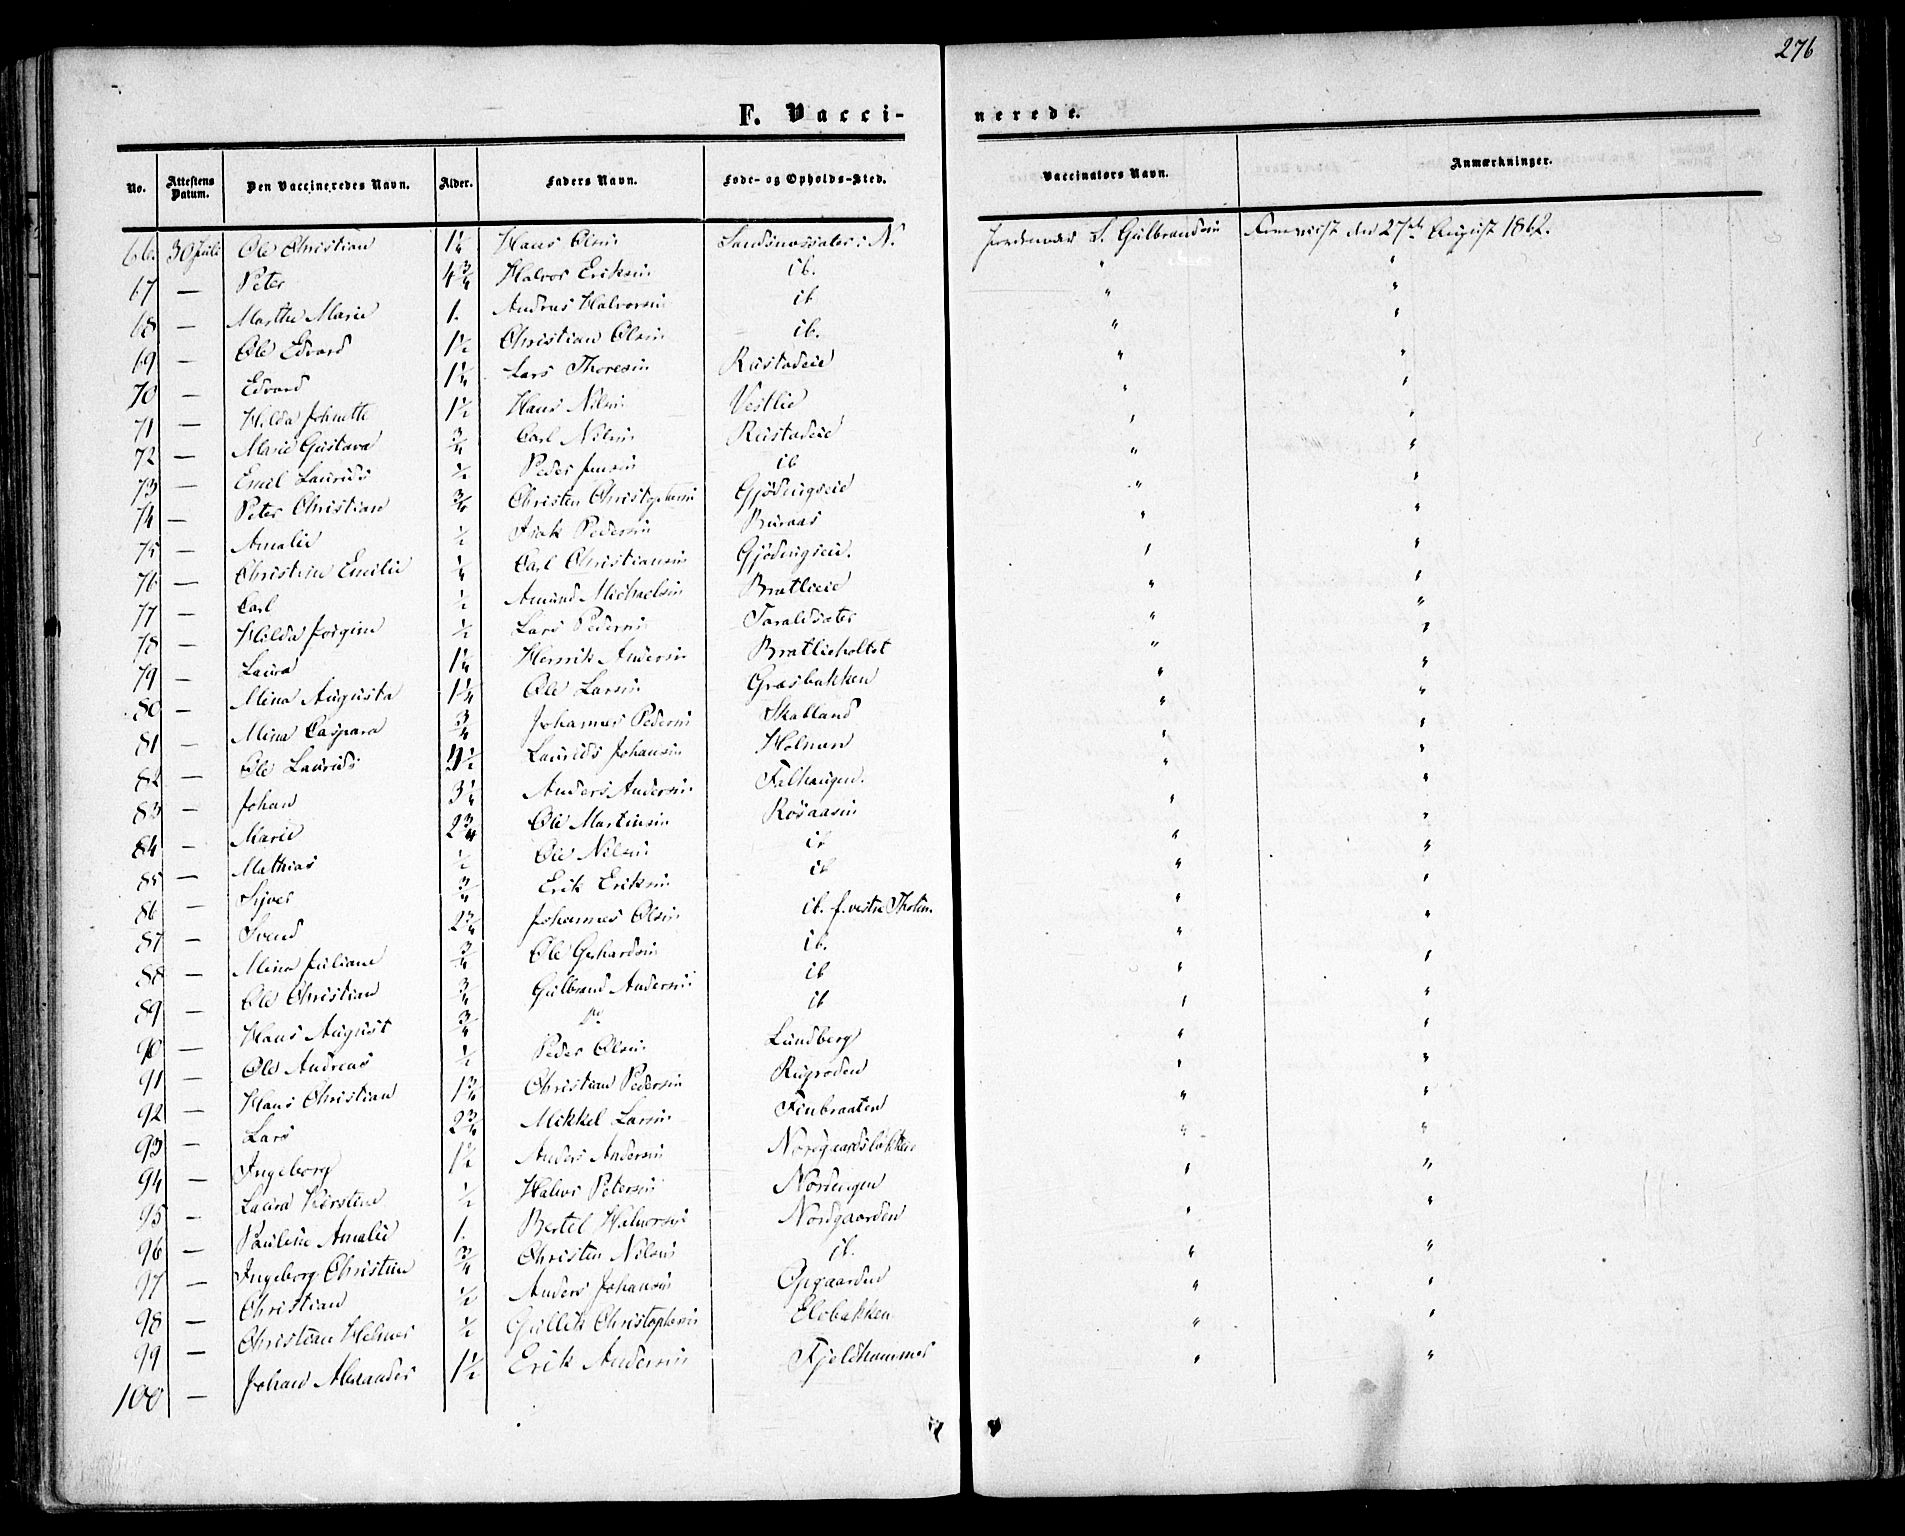 276
F. Vaccinerede.
No. Attestens Datum. Den Vaccineredes Navn. Alder. Faders Navn. Føde- og Opholds-Sted. Vaccinators Navn. Anmærkninger.
66. 30 Juli Ole Christian 1¼ Hans Olsen i N. Jordemoder S. Gulbrandsen den 27de August 1862.
67 — Peter 4¾ Halvor Eriksen ib. " "
68 — Marthe Marie 1. Andreas Halvorsen ib " "
69 — Ole Edvard 1½ Christian Olsen ib. " "
70 — Edvard 1¼ Lars Thoresen Rustadeie " "
71 — Hilda Johnette 1½ Hans Nilsen Vestlie " "
72 — Marie Gustava ¾ Carl Nilsen Rustadeie " "
73 — Emil Laurids ½ Peder Jensen ib " "
74 — Peter Christian ¾ Christen Christophersen Gjødingseie " "
75 — Amalie ½ Isak Pedersen Buraas " "
76 — Christine Emilie ¼ Carl Christiansen Gjødingseie. " "
77 — Carl ½ Amund Michaelsen Bratlieeie " "
78 — Hilda Jørgine ½ Lars Pedersen Taraldsæter " "
79 — Laura 1¼ Henrik Andersen Bratlieholtet " "
80 — Mina Augusta 1¼ Ole Larsen Græsbakken " "
81 — Mina Caspara ¾ Johannes Pedersen Skalland " "
82 — Ole Laurids Laurids Johansen Holmen " "
83 — Johan 3¼ Anders Andersen Felhaugen. " "
84 — Marie 2¾ Ole Martinsen Røsaasen " "
85 — Mathias ½ Ole Nilsen ib " "
86 — Syver ¾ Erik Eriksen ib " "
87 — Svend 2¾ Johannes Olsen ib. f. vestre Thoten. " "
88 — Mina Juliane ¾ Ole Gerhardsen ib. " "
89 — Ole Christian ¾ Gulbrand Andersen ib " "
90 — Hans August ¾ Do ib " "
91 — Ole Andreas ½ Peder Olsen Lundberg " "
92 — Hans Christian 1¾ Christian Pedersen Rugroden " "
93 — Lars 2¾ Mikkel Larsen Finbraaten " "
94 — Ingeborg 1½ Anders Andersen Nordgaardsløkken " "
95 — Laura Kirstine ½ Halvor Petersen Nordengen " "
96 — Pauline Amalie 1. Bertel Halvorsen Nordgaarden " "
97 — Ingeborg Christine ¾ Christen Nilsen ib. " "
98 — Christian ½ Anders Johansen Opgaarden " "
99 — Christian Helmer ½ Gullik Christophersen Elvbakken " "
100 — Johan Alexander 1½ Erik Andersen Fjeldhammer " "